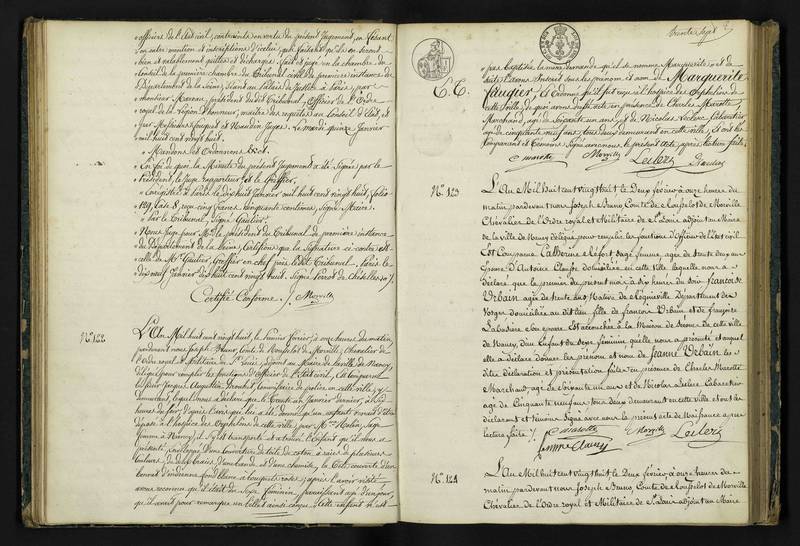 officier de l'état civil, contraints en vertu du présent Jugement, en faisant
en outre mention et inscription d'icelui, quoi faisant ils en seront
bien et valablement quittes et déchargés. fait et jugé en la chambre du
Conseil de la première chambre du Tribunal civil de première instance
du Département de la Seine, séant au Palais de Justice à Paris, par
monsieur Moreau, président dudit Tribunal, Officier de l'Ordre
royal de la Légion d'honneur, maître des requêtes au Conseil d'état, et
Juges. Le mardi quinze Janvier
mil huit cent vingt huit.
Mandons et Ordonnons &a.
En foi de quoi la Minute du présent Jugement a été Signée par le
Président, le Juge rapporteur et le Greffier.
Enregistré à Paris le dix huit Janvier mil huit cent vingt huit, folio
129, Case 8, reçu cinq francs cinquante centimes, Signé
Par le Tribunal, Signé Gautier.
Nous Juge pour Mr le président du Tribunal de première instance
du Département de la Seine, Certifions que la Signature ci-contre est
celle de Mr Gautier, Greffier en chef près ledit Tribunal. Paris le
dix neuf Janvier dix huit cent vingt huit. Signé
Certifié Conforme. Morville
No. 122
L'An Mil huit cent vingt huit, le Premier février, à onze heures du matin,
pardevant nous Joseph Bruno, Comte de Rousselot de Morville, Chevalier de
l'Ordre royal et Militaire de St. Louis, adjoint au Maire de la ville de Nancy,
délégué pour remplir les fonctions d'Officier de l'Etat civil, Est Comparu
le Sieur Jacques Augustin Commissaire de police en cette ville, y
demeurant, lequel nous a déclaré que le trente un Janvier dernier, à
heures du soir, d'après l'avis que lui a été donné qu'un enfant venait d'être
déposé à l'hospice des Orphelins de cette ville, par Mme Sage
femme à Nancy, il s'y est transporté et a trouvé l'Enfant qu'il nous a
présenté, enveloppé d'une couverture de toile de coton à raies de plusieurs
couleurs, et d'une chemise, la Tête couverte d'un
bonnet d'indienne fond blanc à bouquets roses; après l'avoir visité
avons reconnu qu'il était du Sexe féminin, paraissant âgé d'un jour,
qu'il avait pour remarque un billet ainsi conçu: Cette enfant n'est
trente sept
pas baptisée, la mère demande qu'elle se nomme Marguerite et de
suite l'avons Inscrit sous les prénom et nom de Marguerite
Faugier, et Ordonné qu'il fût reçu à l'hospice des Orphelins de
cette ville, de quoi avons dressé acte en présence de Charles Marotte,
Marchand, âgé de Soixante un ans et de Nicolas Leclerc Cabaretier,
âgé de cinquante neuf ans, tous deux demeurant en cette ville, et ont les
Comparant et témoins Signé avec nous, le présent Acte, après lecture faite.
C marotte Morville Leclerc
No. 123
L'An Mil huit cent vingt huit le Deux février à onze heures du
matin pardevant nous Joseph Bruno Comte de Rousselot de Morville
Chevalier de l'Ordre royal et Militaire de St Louis adjoint au Maire
de la ville de Nancy délégué pour remplir les fonctions d'Officier de l'état civil
Est Comparue Catherine Sage femme, agée de trente deux ans
Epouse d'Antoine domiciliée en cette ville laquelle nous a
déclaré que le premier du présent mois à dix heures du soir francoise
Urbain agée de trente ans Native de Département des
Vosges domiciliée au dit lieu fille de francois Urbain et de françoise
son épouse est accouchée à la Maison de Secours de cette ville
de Nancy, d'un Enfant du Sexe feminin qu'elle nous a présenté et auquel
elle a déclaré donner les prénom et nom de Jeanne Urbain les
dites déclaration et présentation faites en présence de Charles Marotte
Marchand, agé de Soixante un ans et de Nicolas Leclerc Cabaretier
agé de Cinquante neuf ans tous deux demeurant en cette ville et ont les
déclarant et témoins Signé avec nous le présent acte de Naissance après
lecture faite
C marotte Morville Leclerc
No. 124
L'An Mil huit cent vingt huit le Deux février à onze heures du
matin pardevant nous Joseph Bruno Comte de Rousselot de Morville
Chevalier de l'Ordre royal et Militaire de St Louis adjoint au Maire